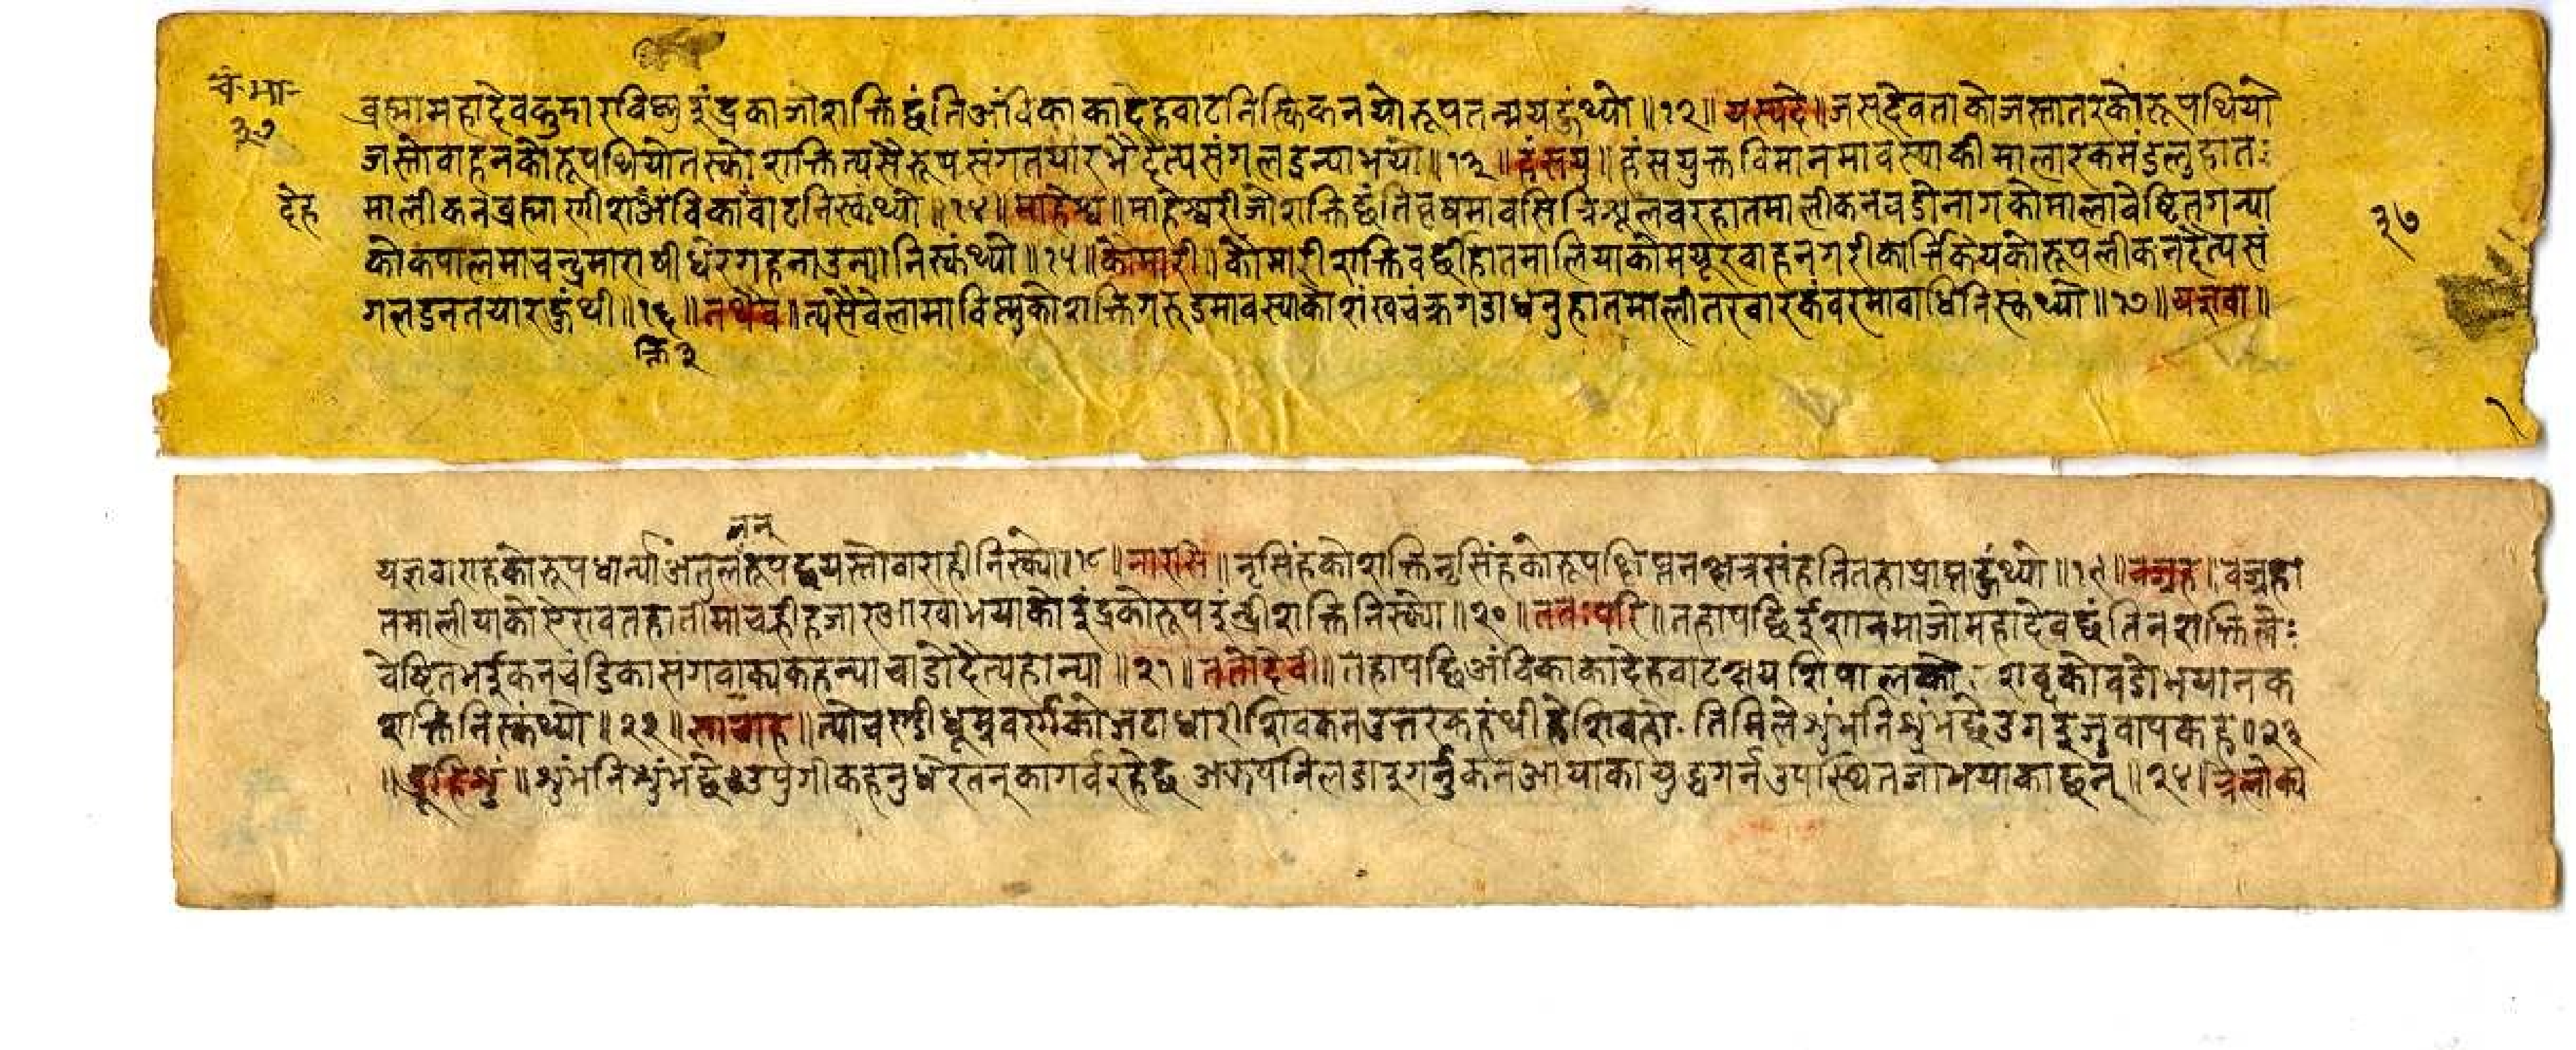 चं-मा-
३७
ब्रह्मामहादेवकुमारविष्णुइंद्रकाजोशक्तिछंतिअंविकाकादेहवाटनिस्किकनयोरूपतन्मयहुंथ्यो॥१२॥यस्यदे॥जसदेवताकोजस्तातरकोरूपथियो
जस्तोवाहनकोरूपथियोतस्को शक्तित्यसैरूपसंगतयारभैदैत्यसंगलडन्याभयां॥१३॥हंसयु॥हंसयुक्तविमानमावस्याकीमालारकमंडलुहात
देह
मालीकनब्रह्माणीशअंविकावाटनिस्कंथ्यो॥१४॥माहेश्व॥माहेश्वरीजोशक्तिछंतिवृषमावसित्रिशूलवरहातमालीकनवडोनागकोमालावेष्टितगन्या
३७
कोकपालमाचन्द्रमाराषीधेरगहनाउन्यानिस्कंथ्यो॥१५॥कौमारी॥कौमारीशक्तिवर्छीहातमालियाकोमयूरवाहनगरीकार्त्तिकेयकोरूपलीकनदैत्यसं
गलडनतयारहुंथी॥१६॥तथैव॥त्यसैवेलामाविष्णुकोशक्तिगरुडमावस्याकोशंखचक्रगदाधनुहातमालीतरवारकंवरमावाधिनिस्कंथ्यो॥१७॥यज्ञवा॥
क्ति३
नन्
यज्ञवाराहकोरूपधार्न्याअतुलंरूपछयस्तोवाराहीनिस्क्यो॥१८॥नारसिं॥नृसिंहकोशक्तिनृसिंहकोरूपथि नक्षत्रसंहतितहाप्राप्तहुंथ्यो॥१९॥वज्रह॥वज्रहा
तमालीयाकोऐरावतहातीमाचह्रीहजारआखाभयाकोइंद्रकोरूपइंन्द्रीशक्तिनिस्क्यो॥२०॥ततःपरि॥तहापछिईशानमाजोमहादेवछंतिनशक्तिले
वेष्टितभईकनचंडिकासंगवाक्यकहन्याचाडोदैत्यहान्या॥२१॥ततोदेवी॥तहापछिअंविकाकादेहवाट शयशिषालको शवृकोवडोभयानक
शक्तिनिस्कंथ्यो॥२२॥साचाह॥त्योचण्डीधूम्रवर्णकोजटाधारीशिवकनउत्तरकहंथीहेशिवहो तिमिलेशुंभनिशुंभछेउगइजुवापकह॥२३
॥ब्रूहिशुं॥शुंभनिशुंभछे कहनुधेरैतनकागर्वरहेछ अरूपनिलडाइगर्नुकनआयाकायुद्धगर्नउपस्थितजोभयाकाछन्॥२४॥त्रैलोक्य